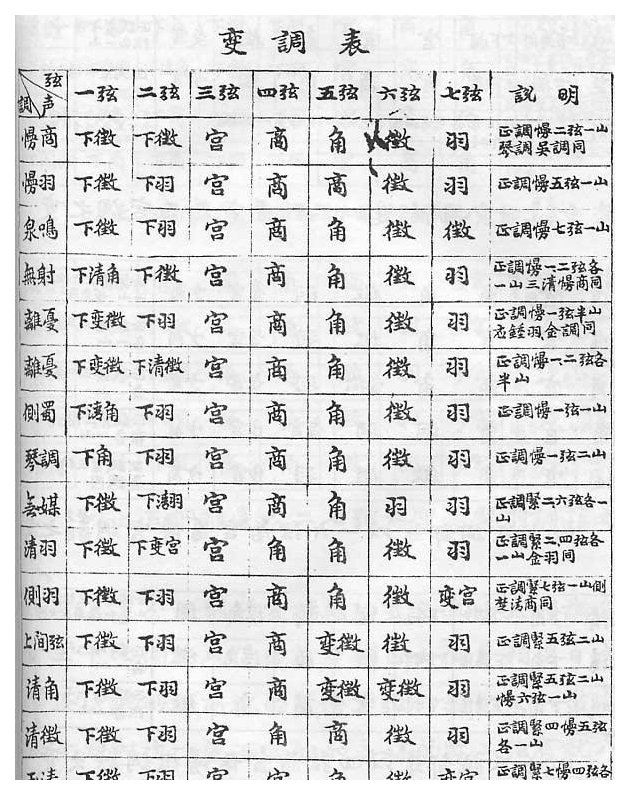 变調表
弦 調声 一弦 二弦 三弦 四弦 五弦 六弦 七弦 説明
慢商 下徵 下徵 宫 商 角 徵 羽 正調慢二弦一山
琴調吴調同
慢羽 下徵 下羽 宫 商 商 徵 羽 正調慢五弦一山
泉鳴 下徵 下羽 宫 商 角 徵 徵 正調慢七弦一山
無射 下清角 下徵 宫 商 角 徵 羽 正調慢一二弦各
一山三清慢商同
離憂 下变徵 下羽 宫 商 角 徵 羽 正調慢一弦半山
羽金調同
離憂 下变徵 下清徵 宫 商 角 徵 羽 正調慢一二弦各
半山
側蜀 下清角 下羽 宫 商 角 徵 羽 正調慢一弦一山
琴調 下角 下羽 宫 商 角 徵 羽 正調慢一弦二山
無媒 下徵 下清羽 宫 商 角 羽 羽 正調緊二六弦各一
山
清羽 下徵 下变宫 宫 角 角 徵 羽 正調緊二四弦各
一山金羽同
側羽 下徵 下羽 宫 商 角 徵 变宫 正調緊七弦一山側
楚清商同
上间弦 下徵 下羽 宫 商 变徵 徵 羽 正調緊五弦二山
清角 下徵 下羽 宫 商 变徵 变徵 羽 正調緊五弦二山
慢六弦一山
清徵 下徵 下羽 宫 角 商 徵 羽 正調緊四慢五弦
各一山
下徵 下羽 宫 宫 角 徵 变宫 正調緊七慢四弦各